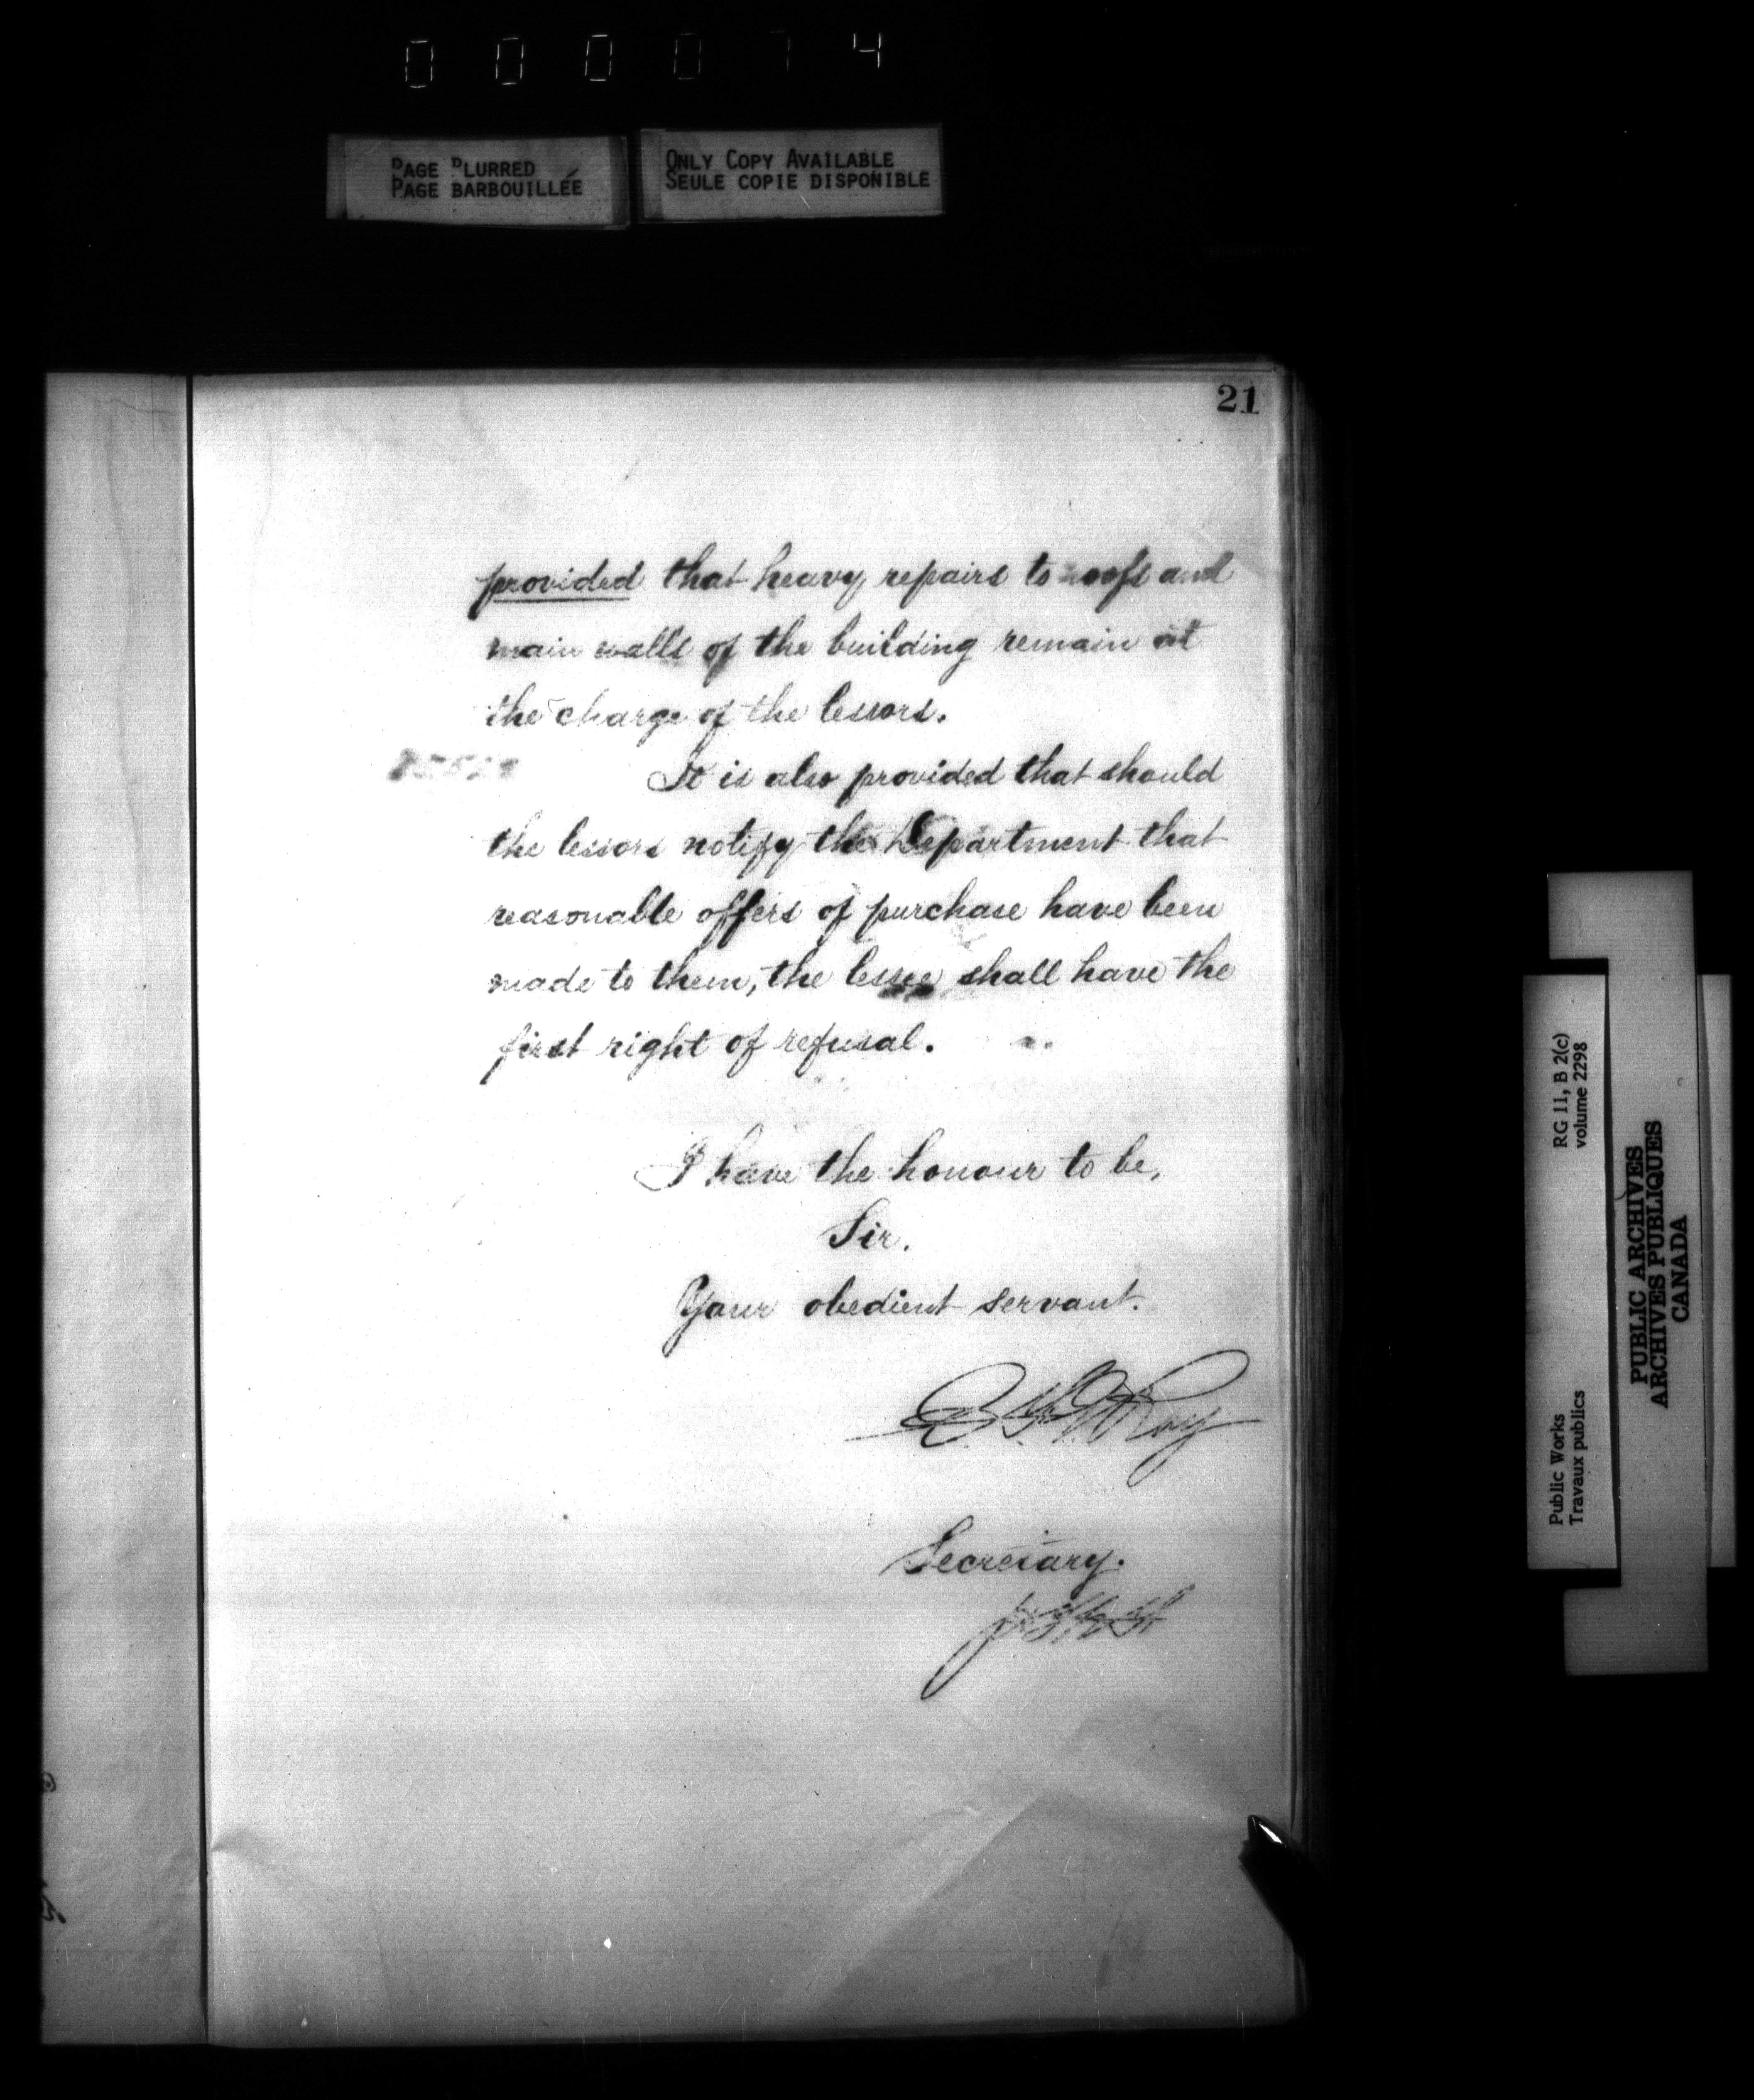 PAGE BLURRED
PAGE BARBOUILLÉE
ONLY COPY AVAILABLE
SEULE COPIE DISPONIBLE
21
provided that heavy repairs to roofs and
main walls of the building remain at
the charge of the lessors.
It is also provided that should
the lessors notify the Department that
reasonable offers of purchase have been
made to them, the lessee shall have the
first right of refusal.
I have the honour to be,
Sir.
Your obedient servant.
Roy
Secretary.
RG 11, B 2(c)
volume 2298
Public Works
Travaux publics
PUBLIC ARCHIVES
ARCHIVES PUBLIQUES
CANADA